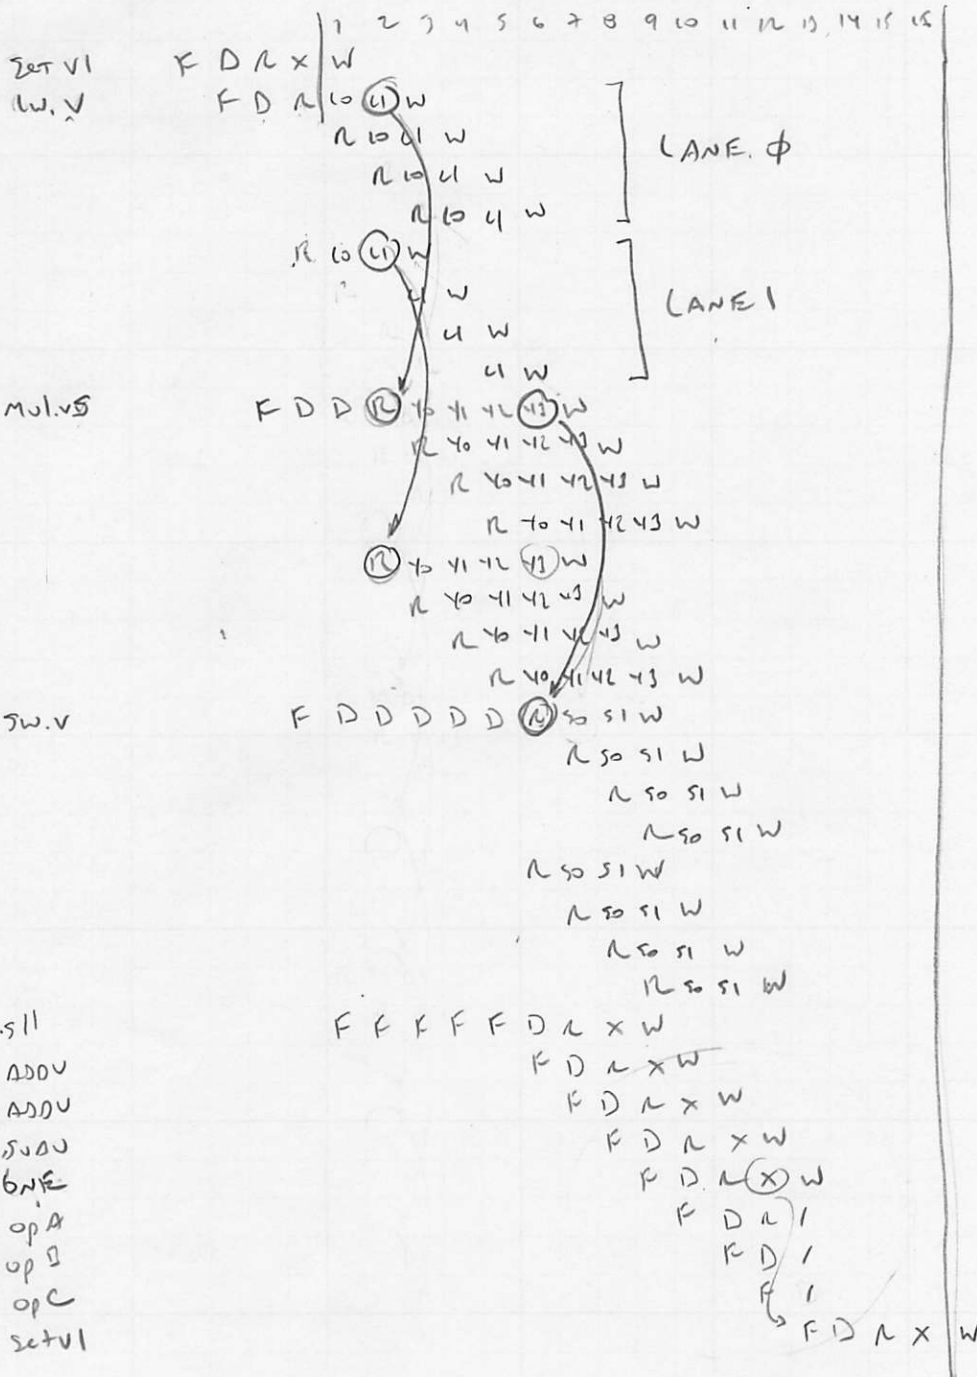 1 2 3 4 5 6 7 8 9 10 11 12 13 14 15 16
SET VL F D R X W
LW.V F D R L0 L1 W
R L0 L1 W
R L0 L1 W LANE.Φ
R L0 L1 W
R L0 L1 W
L1 W LANE 1
L1 W
L1 W
MUL.VS F D D R Y0 Y1 Y2 Y3 W
R Y0 Y1 Y2 Y3 W
R Y0 Y1 Y2 Y3 W
R Y0 Y1 Y2 Y3 W
R Y0 Y1 Y2 Y3 W
R Y0 Y1 Y2 Y3 W
R Y0 Y1 Y2 Y3 W
R Y0 Y1 Y2 Y3 W
SW.V F D D D D D R S0 S1 W
R S0 S1 W
R S0 S1 W
R S0 S1 W
R S0 S1 W
R S0 S1 W
R S0 S1 W
R S0 S1 W
sll F F F F F D R X W
ADDU F D R X W
ADDU F D R X W
SUBU F D R X W
BNE F D R X W
opA F D R /
opB F D /
opC F /
setvl F D R X W